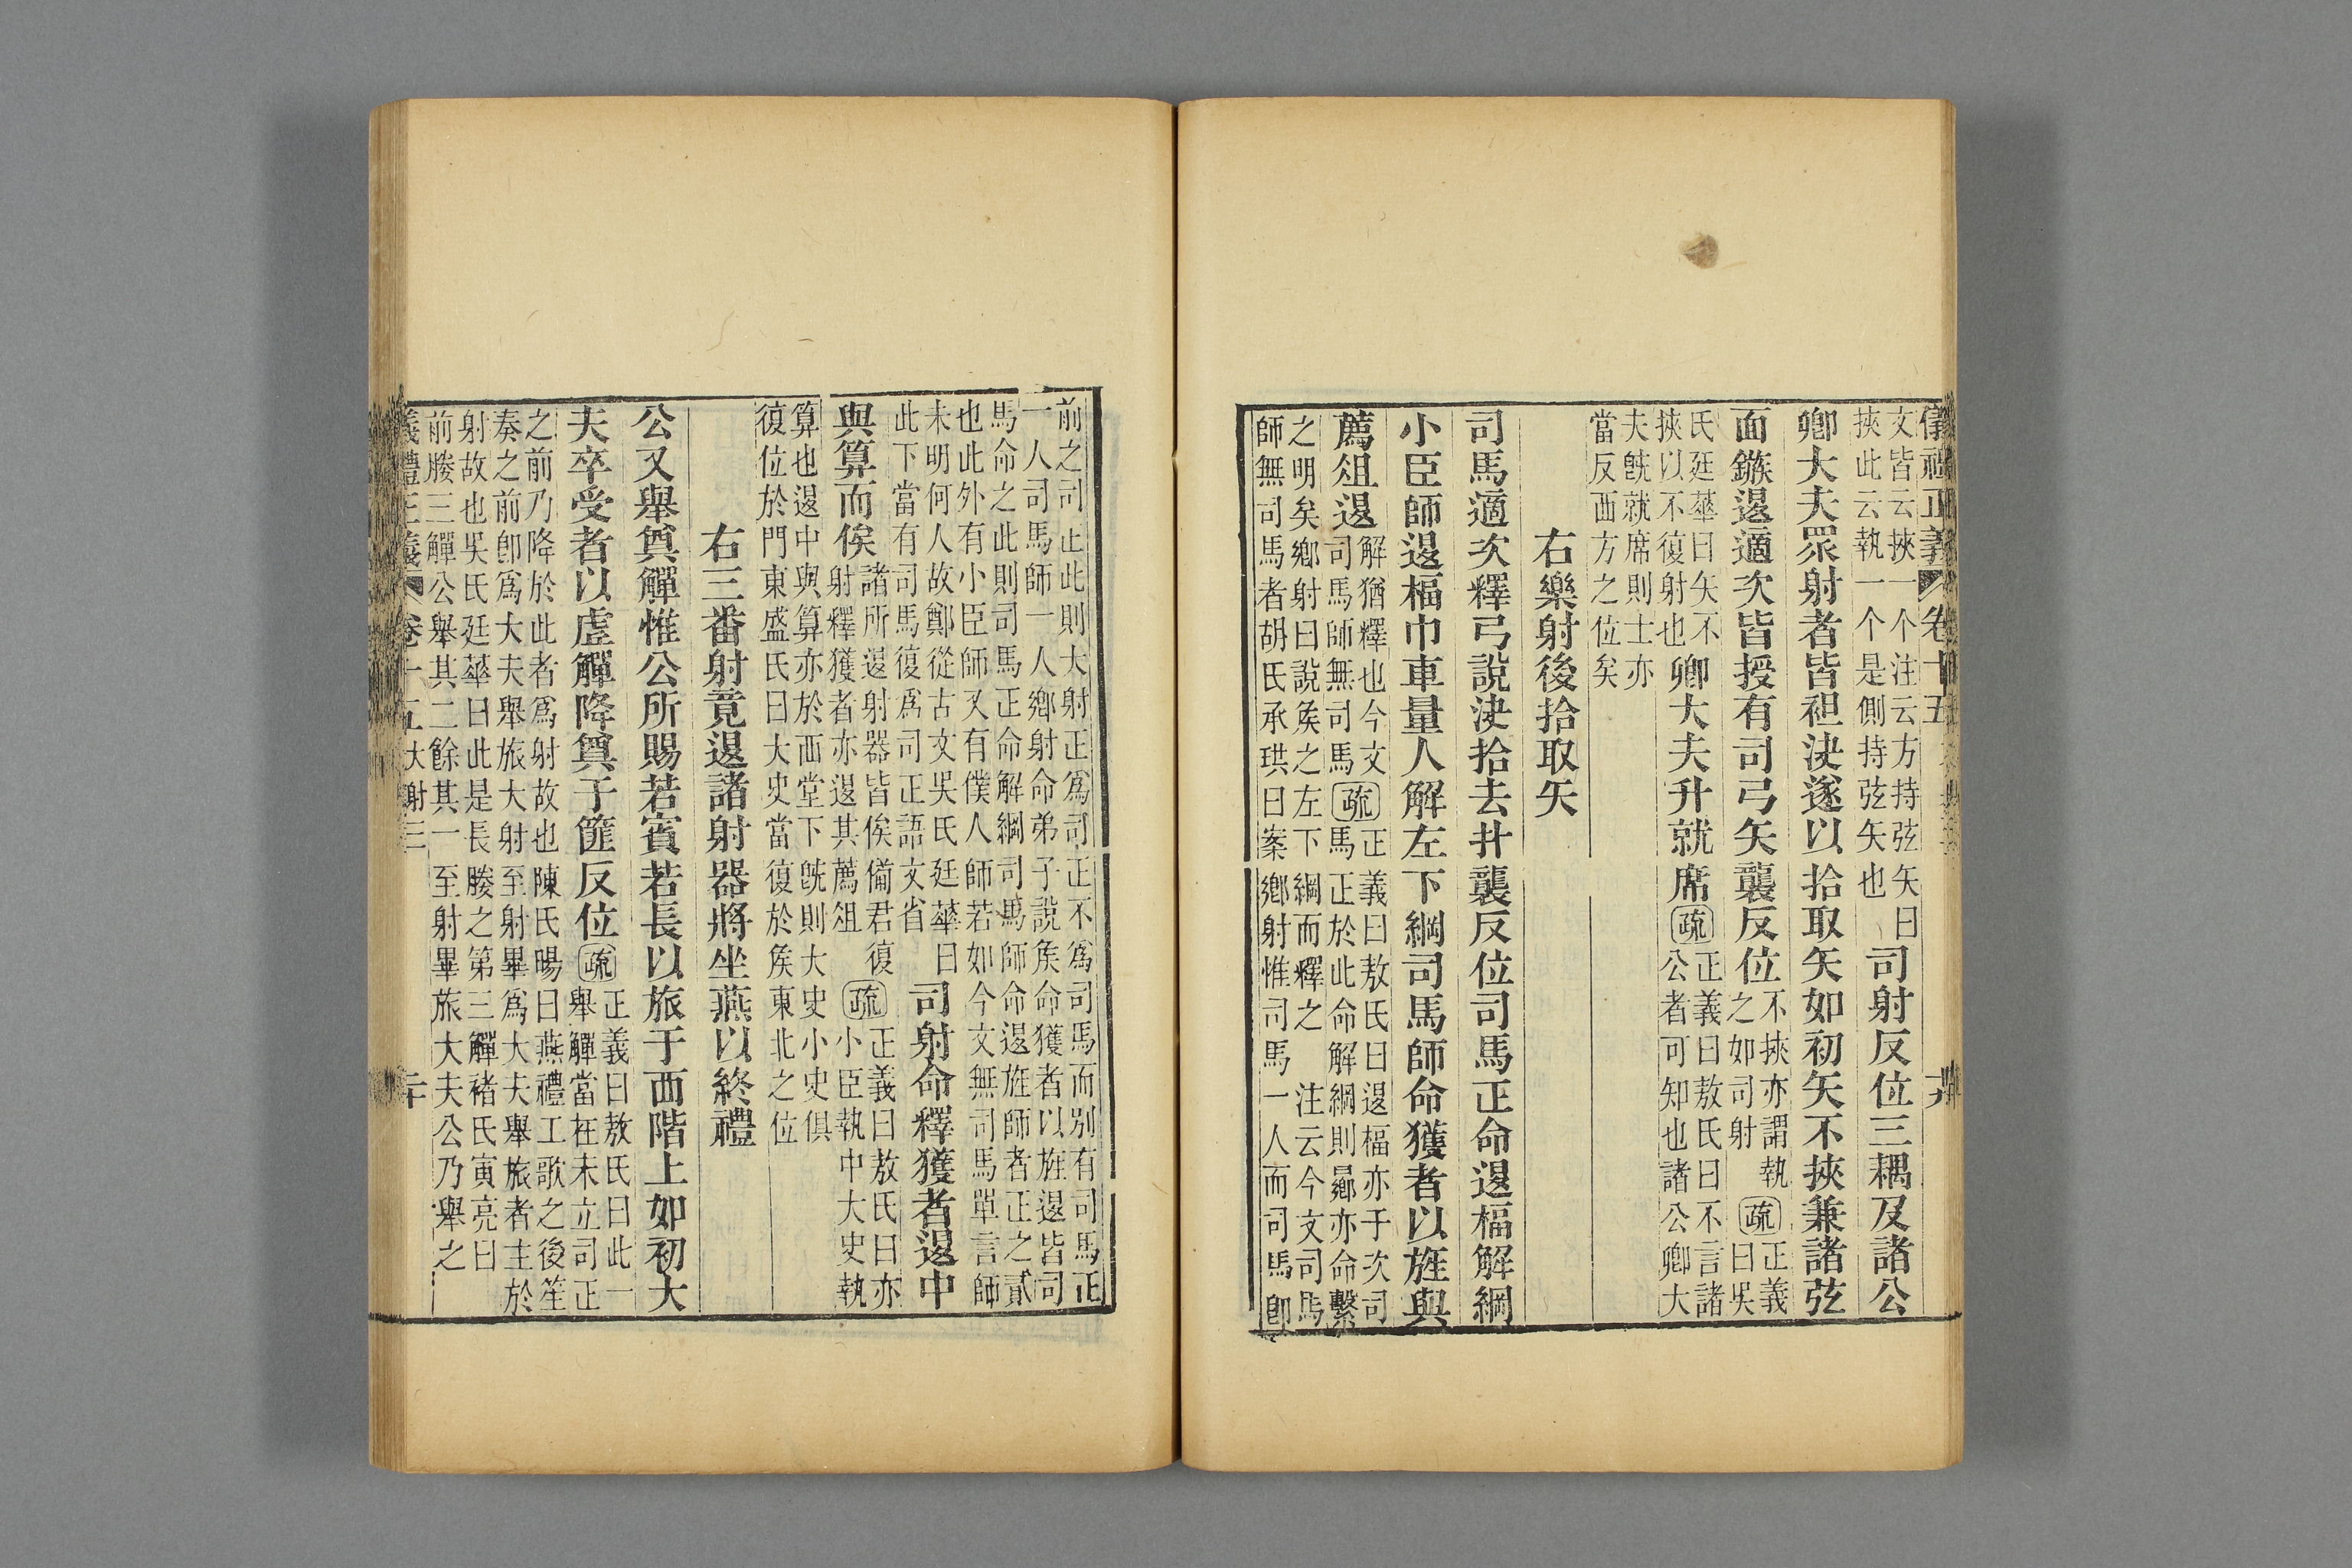 儀禮正義 卷十五
文皆云挾一个注云方持弦矢曰
挾此云執一个是側持弦矢也
司射反位三耦及諸公
卿大夫眾射者皆袒決遂以拾取矢如初矢不挾兼諸弦
面鏃退適次皆授有司弓矢襲反位
不挾亦謂執
之如司射
疏
正義
曰吳
氏廷華曰矢不
挾以不復射也
卿大夫升就席
疏
正義曰敖氏曰不言諸
公者可知也諸公卿大
夫旣就席則士亦
當反西方之位矣
右樂射後拾取矢
司馬適次釋弓說決拾去扑襲反位司馬正命退楅解綱
小臣師退楅巾車量人解左下綱司馬師命獲者以旌與
薦俎退
解猶釋也今文
司馬師無司馬
疏
正義曰敖氏曰退楅亦于次司
馬正於此命解綱則曏亦命繫
之明矣鄉射曰說矦之左下綱而釋之 注云今文司馬
師無司馬者胡氏承珙曰案鄉射惟司馬一人而司馬卽
前之司正此則大射正爲司正不爲司馬而別有司馬正
一人司馬師一人鄉射命弟子說矦命獲者以旌退皆司
馬命之此則司馬正命解綱司馬師命退旌師者正之貳
也此外有小臣師又有僕人師若如今文無司馬單言師
未明何人故鄭從古文吳氏廷華曰
此下當有司馬復爲司正語文省
司射命釋獲者退中
與算而俟
諸所退射器皆俟備君復
射釋獲者亦退其薦俎
疏
正義曰敖氏曰亦
小臣執中大史執
算也退中與算亦於西堂下旣則大史小史俱
復位於門東盛氏曰大史當復於矦東北之位
右三番射竟退諸射器將坐燕以終禮
公又舉奠觶惟公所賜若賓若長以旅于西階上如初大
夫卒受者以虛觶降奠于篚反位
疏
正義曰敖氏曰此一
舉觶當在未立司正
之前乃降於此者爲射故也陳氏暘曰燕禮工歌之後笙
奏之前卽爲大夫舉旅大射至射畢爲大夫舉旅者主於
射故也吳氏廷華曰此是長媵之第三觶褚氏寅亮曰
前媵三觶公舉其二餘其一至射畢旅大夫公乃舉之
義禮正義 卷十五 大射三 二十